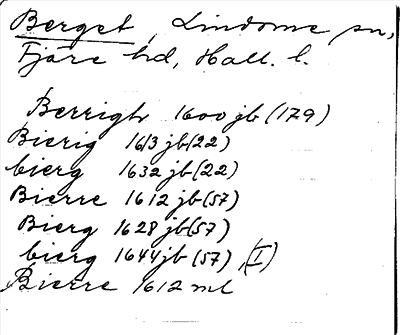 Berget, Lindome sn,
Fjäre hd, Hall. l.
Berrigh 1600 jb (179)
Bierig 1613 jb (22)
bierg 1632 jb (22)
Bierre 1612 jb (57)
Bierg 1628 jb (57)
bierg 1644 jb (57), (I)
Bierre 1612 ml